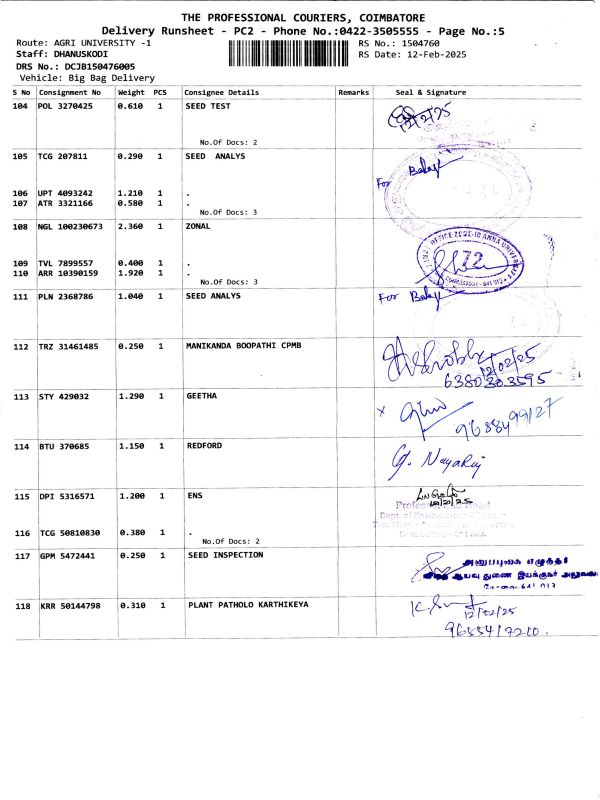 THE PROFESSIONAL COURIERS, COIMBATORE
Delivery Runsheet - PC2 - Phone No.:0422-3505555 - Page No.:5
Route: AGRI UNIVERSITY -1 RS No.: 1504760
Staff: DHANUSKODI RS Date: 12-Feb-2025
DRS No.: DCJB150476005
Vehicle: Big Bag Delivery
S No Consignment No Weight PCS Consignee Details Remarks Seal & Signature
104 POL 3270425 0.610 1 SEED TEST
12/2/25
No.Of Docs: 2
105 TCG 207811 0.290 1 SEED ANALYS
For Balaji
106 UPT 4093242 1.210 1 .
107 ATR 3321166 0.580 1 .
No.Of Docs: 3
108 NGL 100230673 2.360 1 ZONAL
OFFICE ZONE-10 ANNA UNIVERSITY
72
109 TVL 7899557 0.400 1 .
110 ARR 10390159 1.920 1 .
No.Of Docs: 3
111 PLN 2368786 1.040 1 SEED ANALYS For Balaji
112 TRZ 31461485 0.250 1 MANIKANDA BOOPATHI CPMB
12/02/25
6380303595
113 STY 429032 1.290 1 GEETHA
x
9688499127
114 BTU 370685 1.150 1 REDFORD
G. Nayaraj
115 DPI 5316571 1.200 1 ENS
Professor and Head
Dept. of Environmental
116 TCG 50810830 0.380 1 .
No.Of Docs: 2
117 GPM 5472441 0.250 1 SEED INSPECTION
அனுப்புகை எழுத்தர்
துணை இயக்குநர் அலுவலக
கோவை 641 013
118 KRR 50144798 0.310 1 PLANT PATHOLO KARTHIKEYA
12/02/25